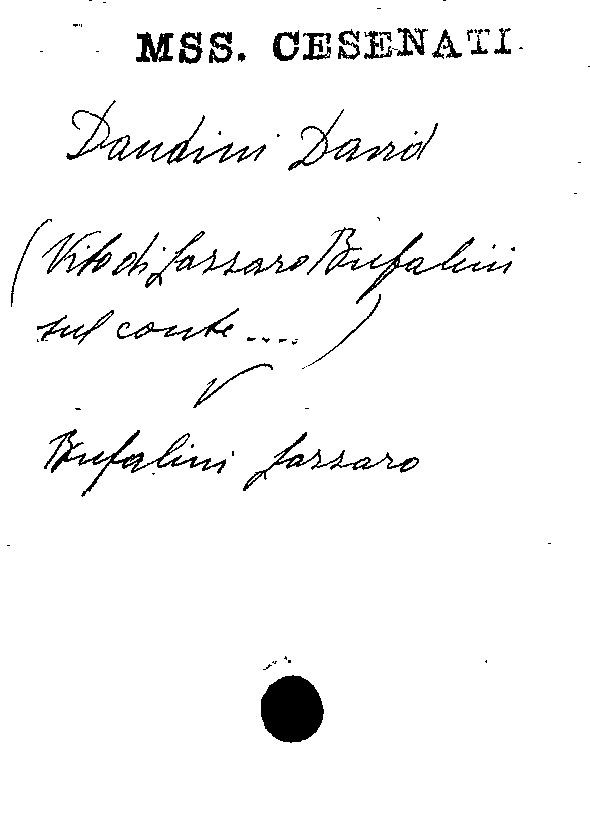 MSS. CESENATI
Dandini David
(Vito di Lazzaro Bufalini
sul conte ....)
V
Bufalini Lazzaro